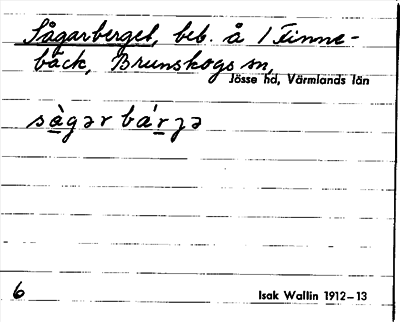 Sågarberget, beb. å 1 Finne-
bäck, Brunskogs sn,
Jösse hd, Värmlands län
sàgər bárʒə
6
Isak Wallin 1912–13